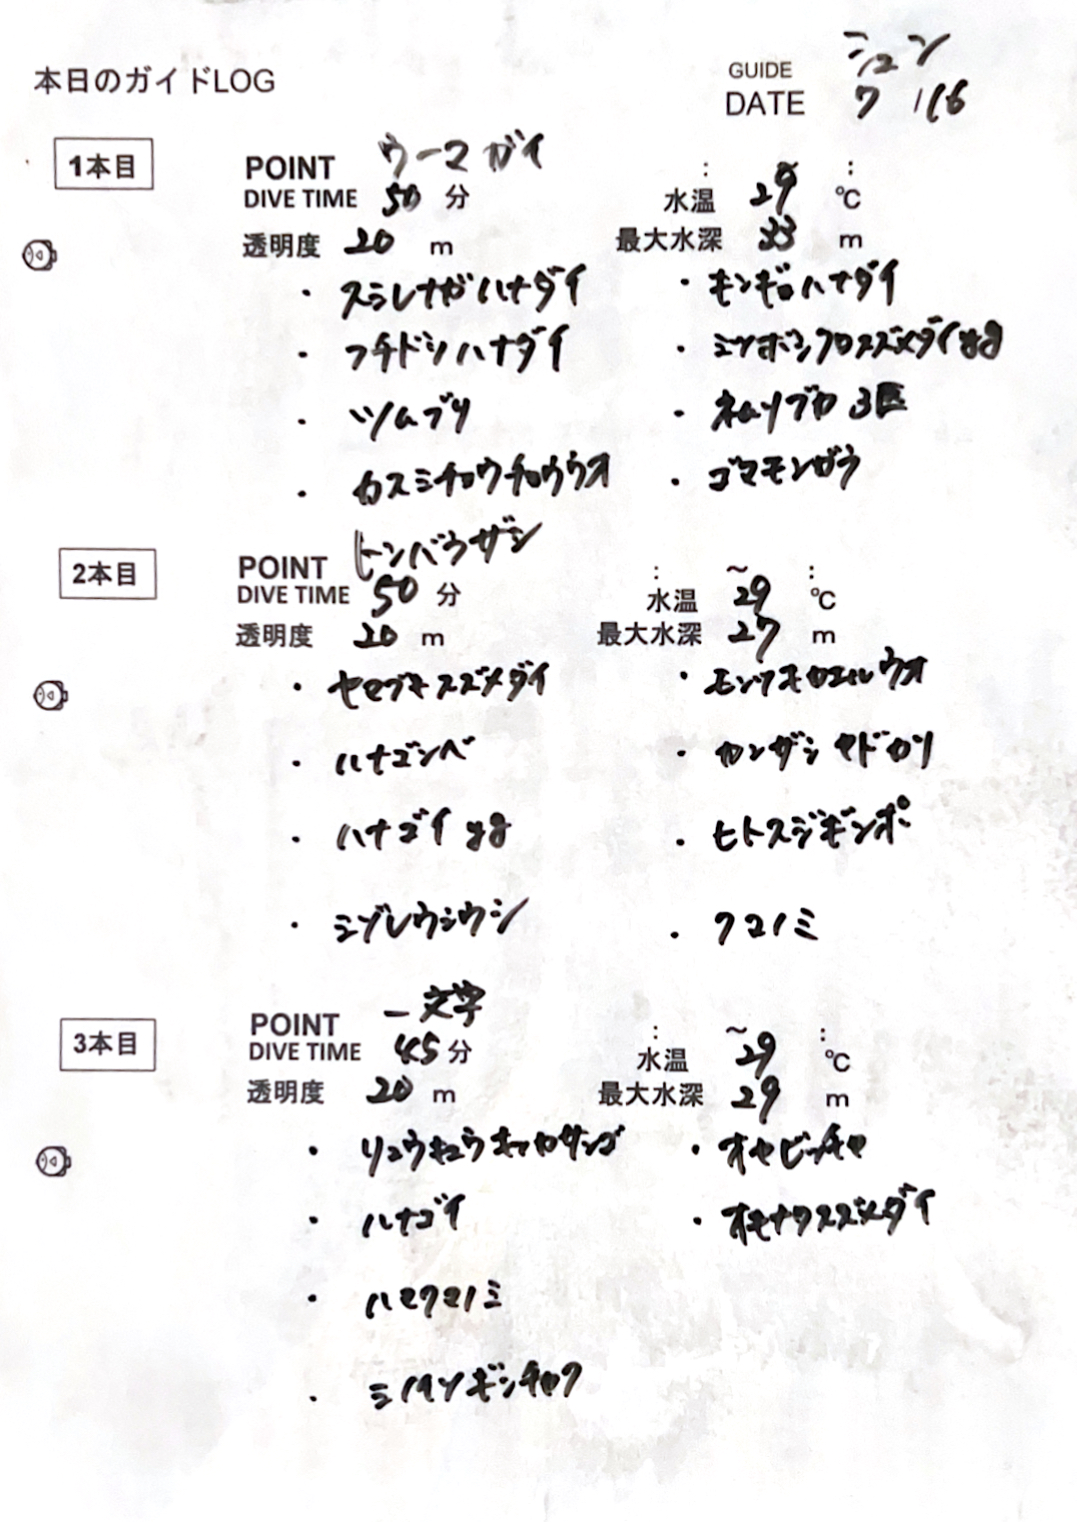 本日のガイドLOG
GUIDE シュン
DATE 7 /16
1本目
POINT ウーマガイ
DIVE TIME 50 分
: ~ :
水温 29 ℃
透明度 20 m
最大水深 33 m
・スミレナガハナダイ
・キンギョハナダイ
・フチドリハナダイ
・ミツボシクロスズメダイyg
・ツムブリ
・ネムリブカ 3匹
・カスミチョウチョウウオ
・ゴマモンガラ
2本目
POINT トンバラザシ
DIVE TIME 50 分
: ~ :
水温 29 ℃
透明度 20 m
最大水深 27 m
・セダカスズメダイ
・モンツキカエルウオ
・ハナゴンベ
・カンザシヤドカリ
・ハナゴイ yg
・ヒトスジギンポ
・ミゾレウミウシ
・クマノミ
3本目
POINT 一文字
DIVE TIME 45 分
: ~ :
水温 29 ℃
透明度 20 m
最大水深 29 m
・リュウキュウキッカサンゴ
・オヤビッチャ
・ハナゴイ
・オキナワスズメダイ
・ハマクマノミ
・シライトイソギンチャク